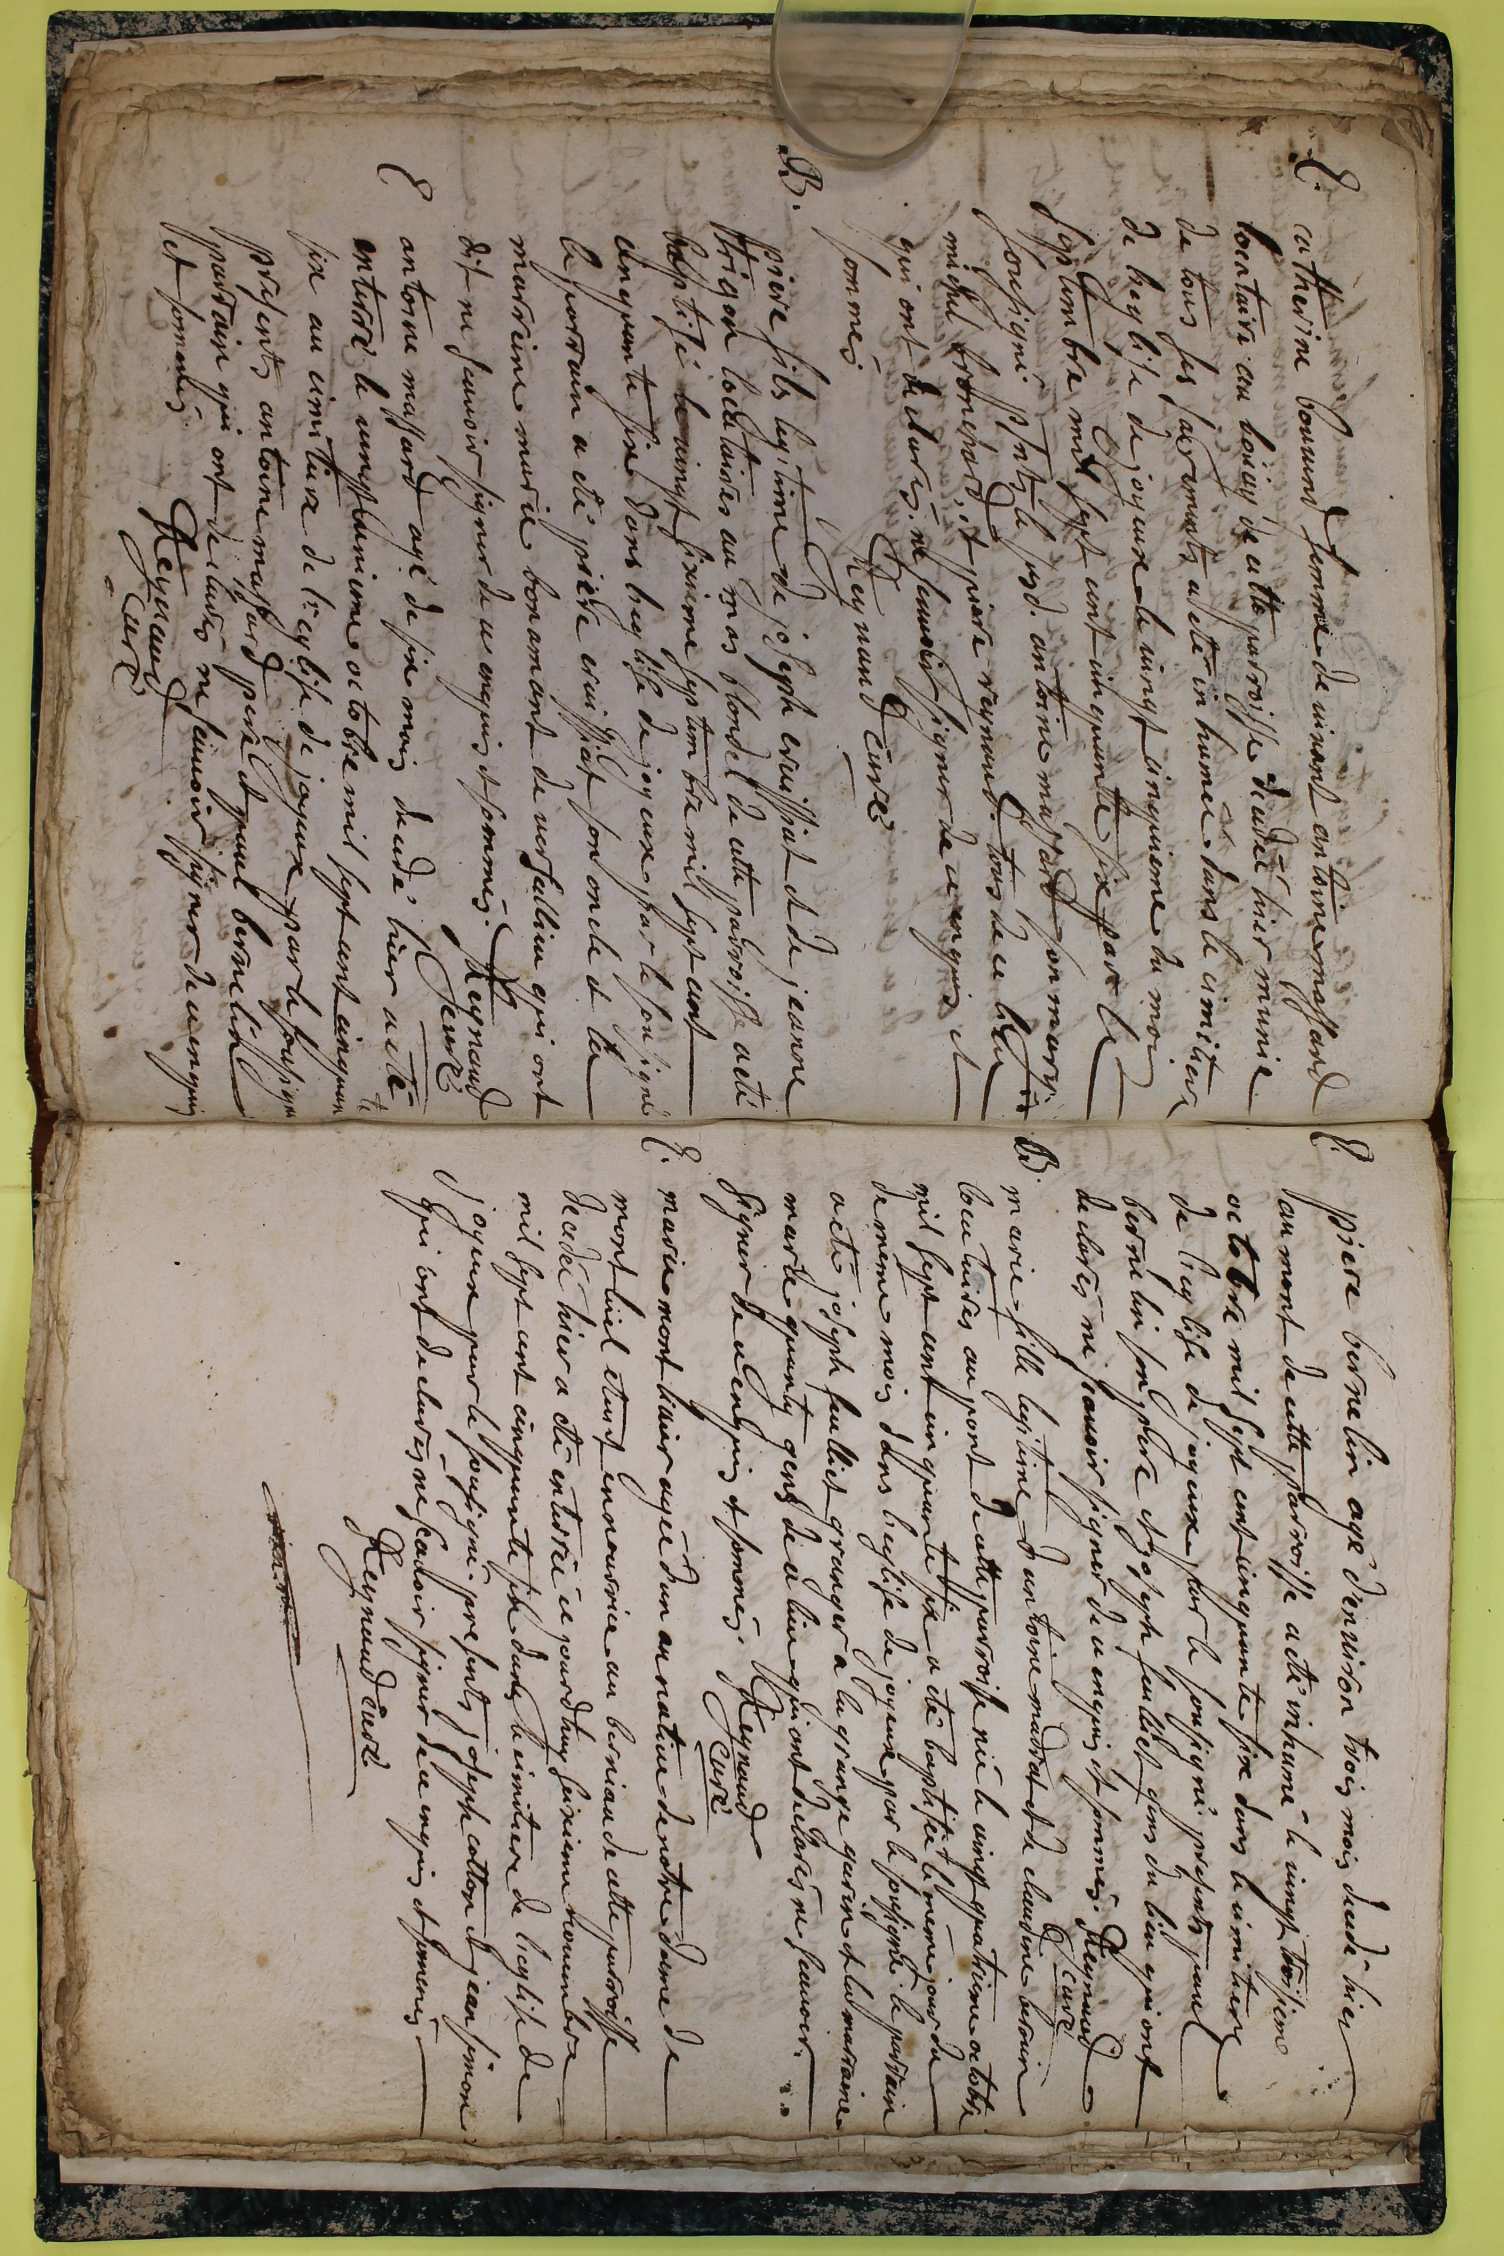 E. catherine bonnard femme de vivant antoine massard
locataire au boüis de cette parroisse decedée hier munie
de tous les sacrements a etté inhumée dans le cimitiere
de l'eeglise de joyeux le vingt cinquieme du mois
septembre mil sept cent cinquante six par le
soussigné pnts le susd. antoine massard son mary
michel et piere reynaud tous de ce lieu
qui ont declarés ne sçauoir signer de ce enquis et
sommés Reynaud Curé
B. piere fils legitime de joseph cruissiat et de jeanne
locataires au mas blondel de cette parroisse a eté
baptisé le vingt sixieme septembre mil sept cent
cinquante six dans l'eeglise de joyeux par le sousigné
le parrain a eté pierre cruissiat son oncle et la
marreine marie bonamant de versallieu qui ont
dit ne scauoir signer de ce enquis et sommés Reynaud
Curé
E antoine massard agé de six mois decedé hier a eté
enterré le octobre mil sept cent cinquante
six au cimitiere de l'eeglise de joyeux par le sousigné
presents antoine massard pere et paul bernelin
parrain qui ont declarés ne scauoir signer de ce enquis
et sommés Reynaud
Curé
E. piere bernelin agé d'enuiron trois mois decedé hier
au mont de cette parroisse a eté inhumé le vingt troisieme
octobre mil sept cent cinquante six dans le cimitiere
de l'eeglise de joyeux par le sousigné presents paul
bernelin son pere et joseph feulliet gens du lieu qui ont
declarés ne scauoir signer de ce enquis et sommés Reynaud
curé
B. marie fille legitime d'antoine et de claudine
locataires au pont de cette parroisse née le vingt quatrieme octobre
mil sept cent cinquante six a eté baptisée le meme jour du
de meme mois dans l'eeglise de joyeux par le sousigné le parrain
a eté joseph feulliet granger a la grange guerin et la marraine
marie gens de ce lieu qui ont declarés ne scauoir
signer de ce enquis et sommés. Reynaud
Curé
E. marie agée d'un an natiue de notre dame de
montluel etant en nourrice au berniau de cette parroisse
decedée hier a eté enterrée ce jourdhuy seizieme nouembre
mil sept cent cinquante six dans le cimitiere de l'eeglise de
joyeux par le sousigné presents joseph cotton et jean simon
qui ont declarés ne scauoir signer de ce enquis et sommés
Reynaud Curé